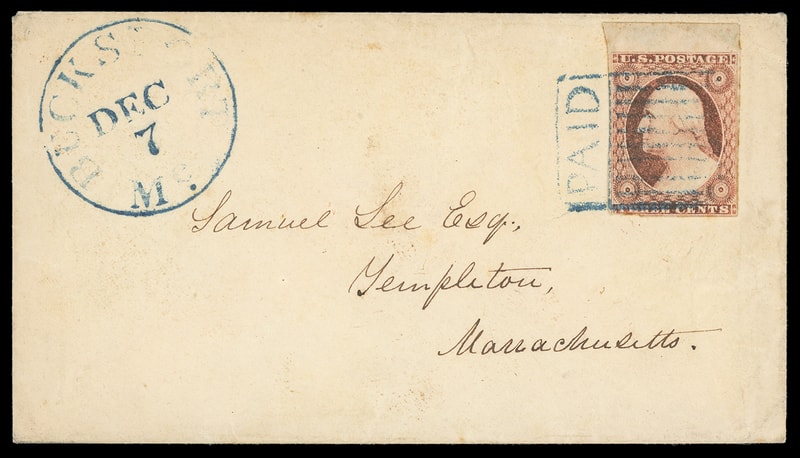 DEC
7
Ms.
U.S. POSTAGE
PAID
THREE CENTS
Samuel Lee Esq.,
Templeton,
Massachusetts.